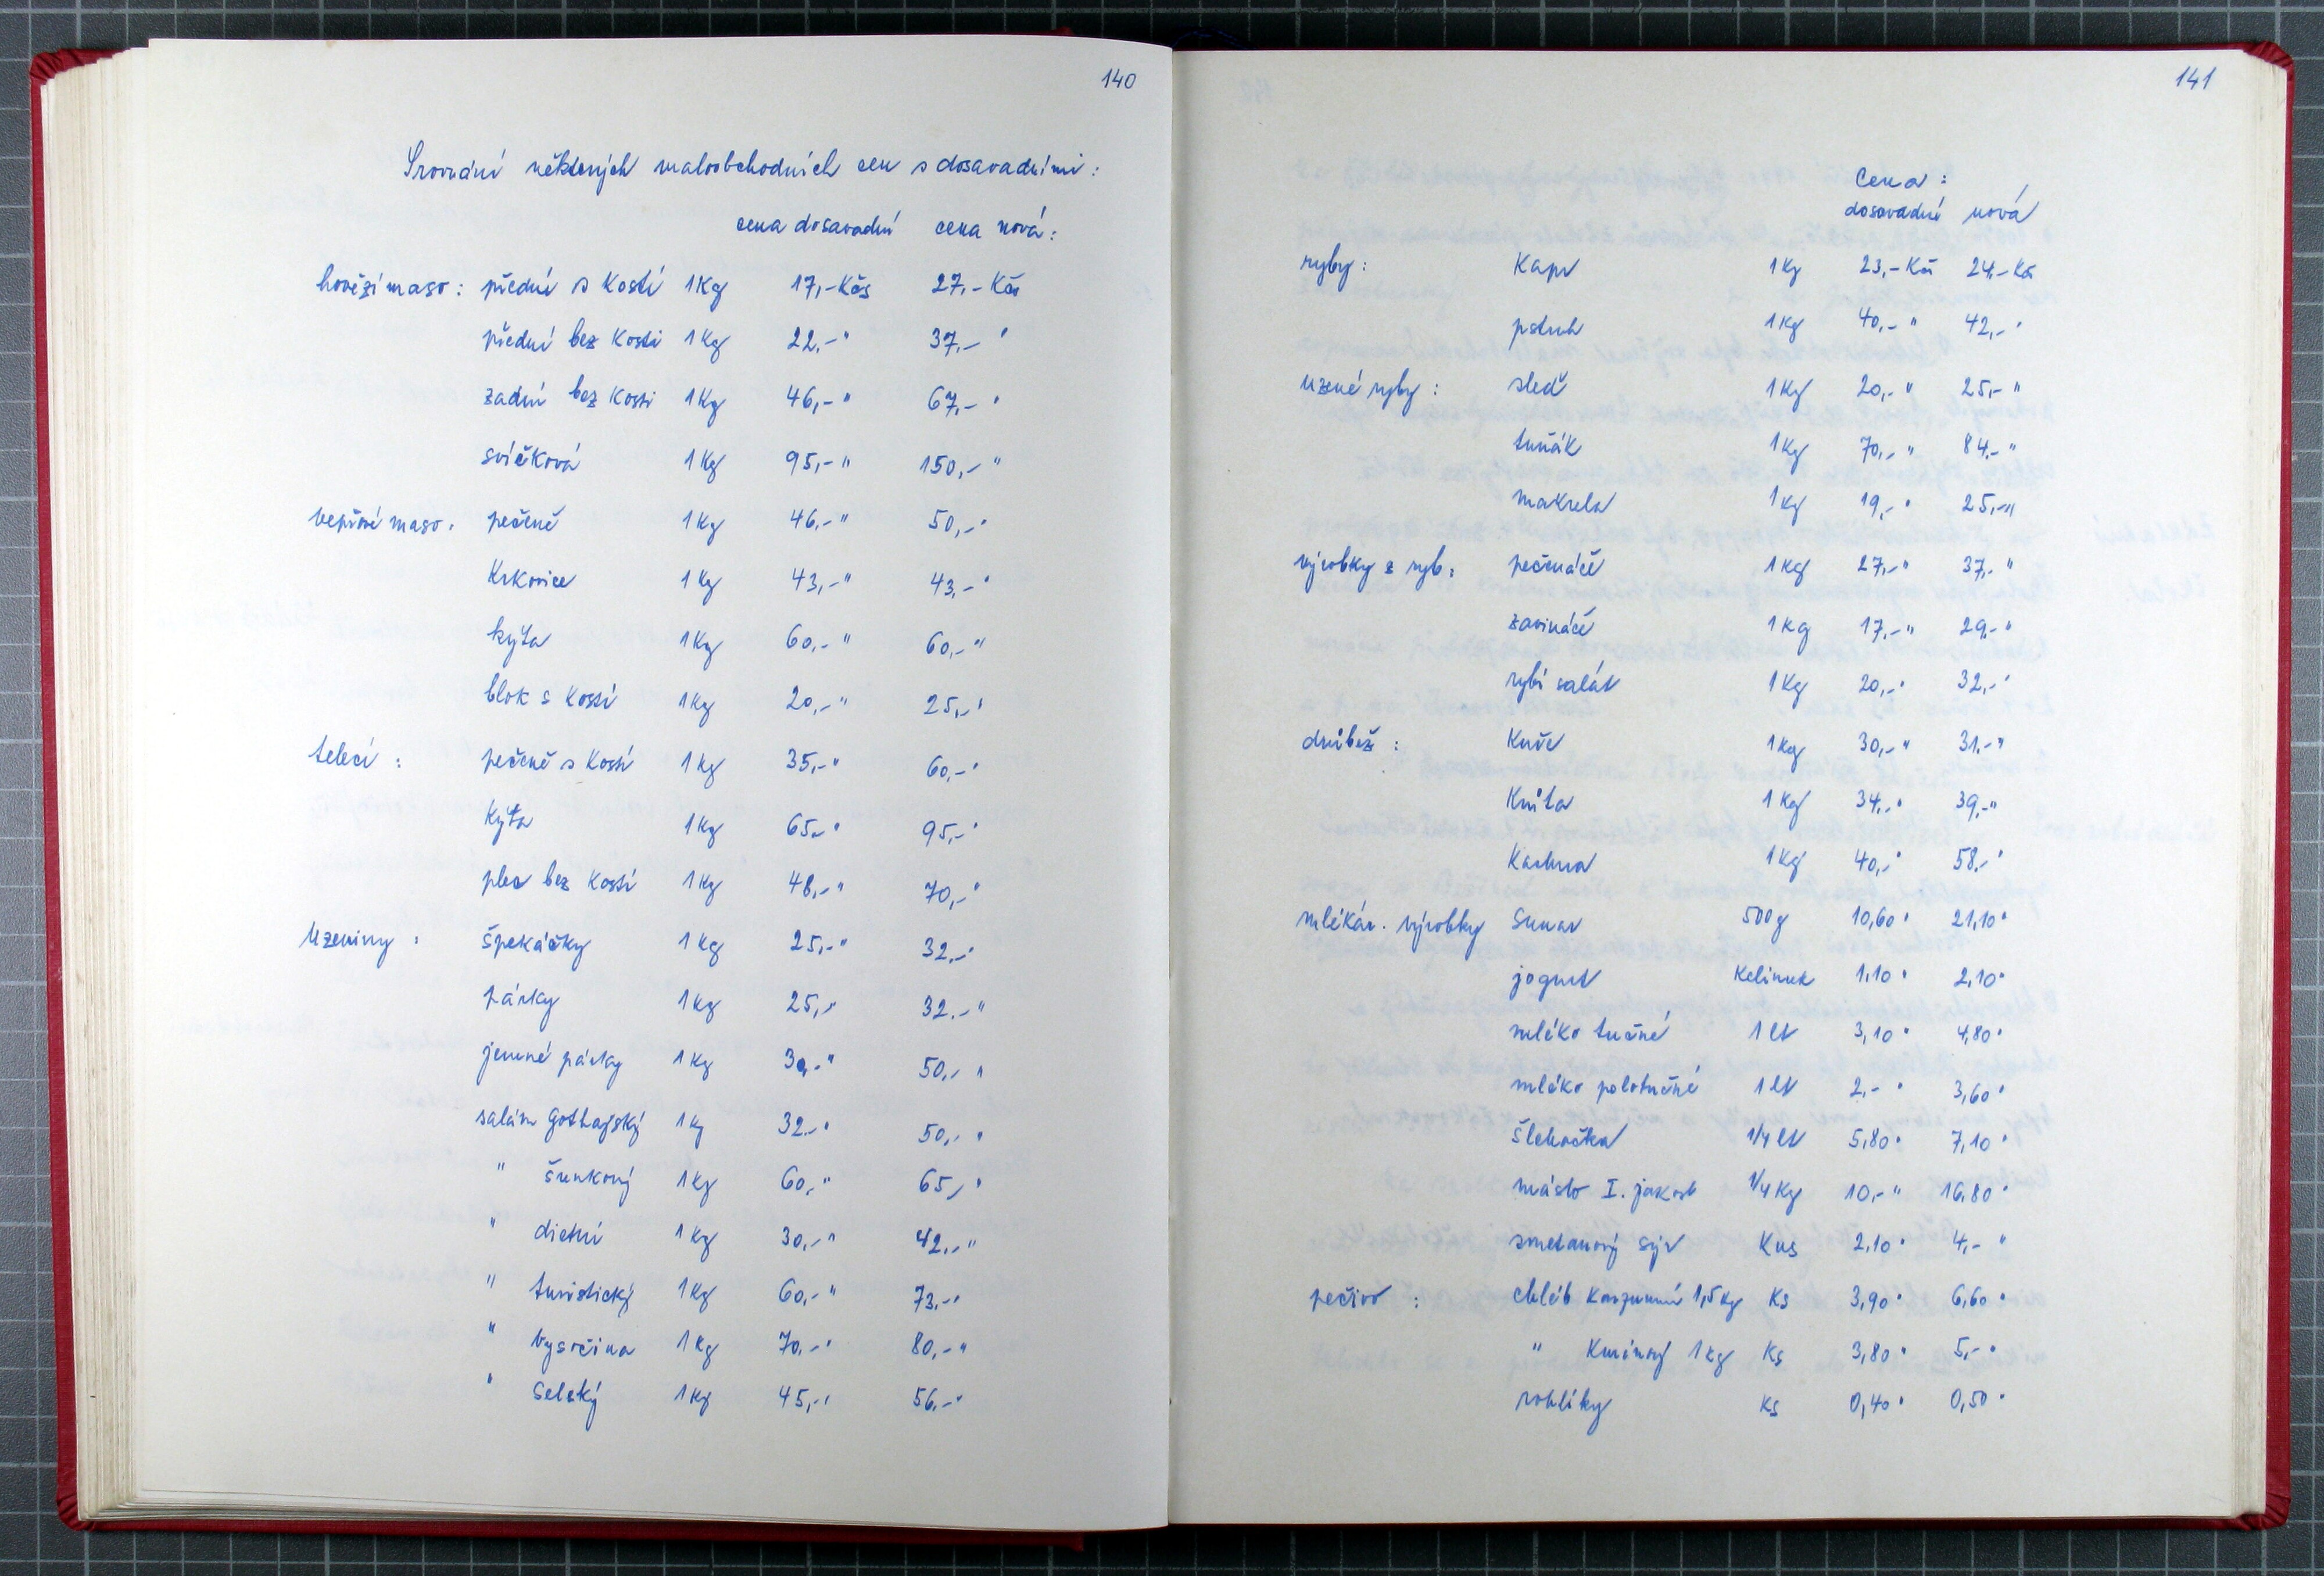 140
Srovnání některých maloobchodních cen s dosavadními:
cena dosavadní cena nová:
hovězí maso: přední s kostí 1kg 17,-Kčs 27,-Kčs
přední bez kosti 1kg 22,-" 37,-"
zadní bez kosti 1kg 46,-" 67,-"
svíčková 1kg 95,-" 150,-"
vepřové maso: pečeně 1kg 46,-" 50,-"
Krkovice 1kg 43,-" 43,-"
kýta 1kg 60,-" 60,-"
blok s kostí 1kg 20,-" 25,-"
telecí: pečeně s kostí 1kg 35,-" 60,-"
kýta 1kg 65,-" 95,-"
plec bez kosti 1kg 48,-" 70,-"
Uzeniny: špekáčky 1kg 25,-" 32,-"
párky 1kg 25,-" 32,-"
jemné párky 1kg 30,-" 50,-"
salám gothajský 1kg 32,-" 50,-"
" šunkový 1kg 60,-" 65,-"
" dietní 1kg 30,-" 42,-"
" turistický 1kg 60,-" 73,-"
" Vysočina 1kg 70,-" 80,-"
" Selský 1kg 45,-" 56,-"
141
Cena:
dosavadní nová
ryby: Kapr 1kg 23,-Kčs 24,-Kčs
pstruh 1kg 40,-" 42,-"
Uzené ryby: sleď 1kg 20,-" 25,-"
tuňák 1kg 70,-" 84,-"
makrela 1kg 19,-" 25,-"
výrobky z ryb: pečenáče 1kg 27,-" 37,-"
zavináče 1kg 17,-" 29,-"
rybí salát 1kg 20,-" 32,-"
drůbež: Kuře 1kg 30,-" 31,-"
Krůta 1kg 34,-" 39,-"
Kachna 1kg 40,-" 58,-"
mlékár. výrobky Sunar 500g 10,60" 21,10"
jogurt Kelímek 1,10" 2,10"
mléko tučné 1 lt 3,10" 4,80"
mléko polotučné 1 lt 2,-" 3,60"
šlehačka 1/4 lt 5,80" 7,10"
máslo I. jakost 1/4 Kg 10,-" 16,80"
smetanový sýr Kus 2,10" 4,-"
pečivo: chléb konzumní 1,5kg Ks 3,90" 6,60"
" Kmínový 1kg Ks 3,80" 5,-"
rohlíky Ks 0,40" 0,50"